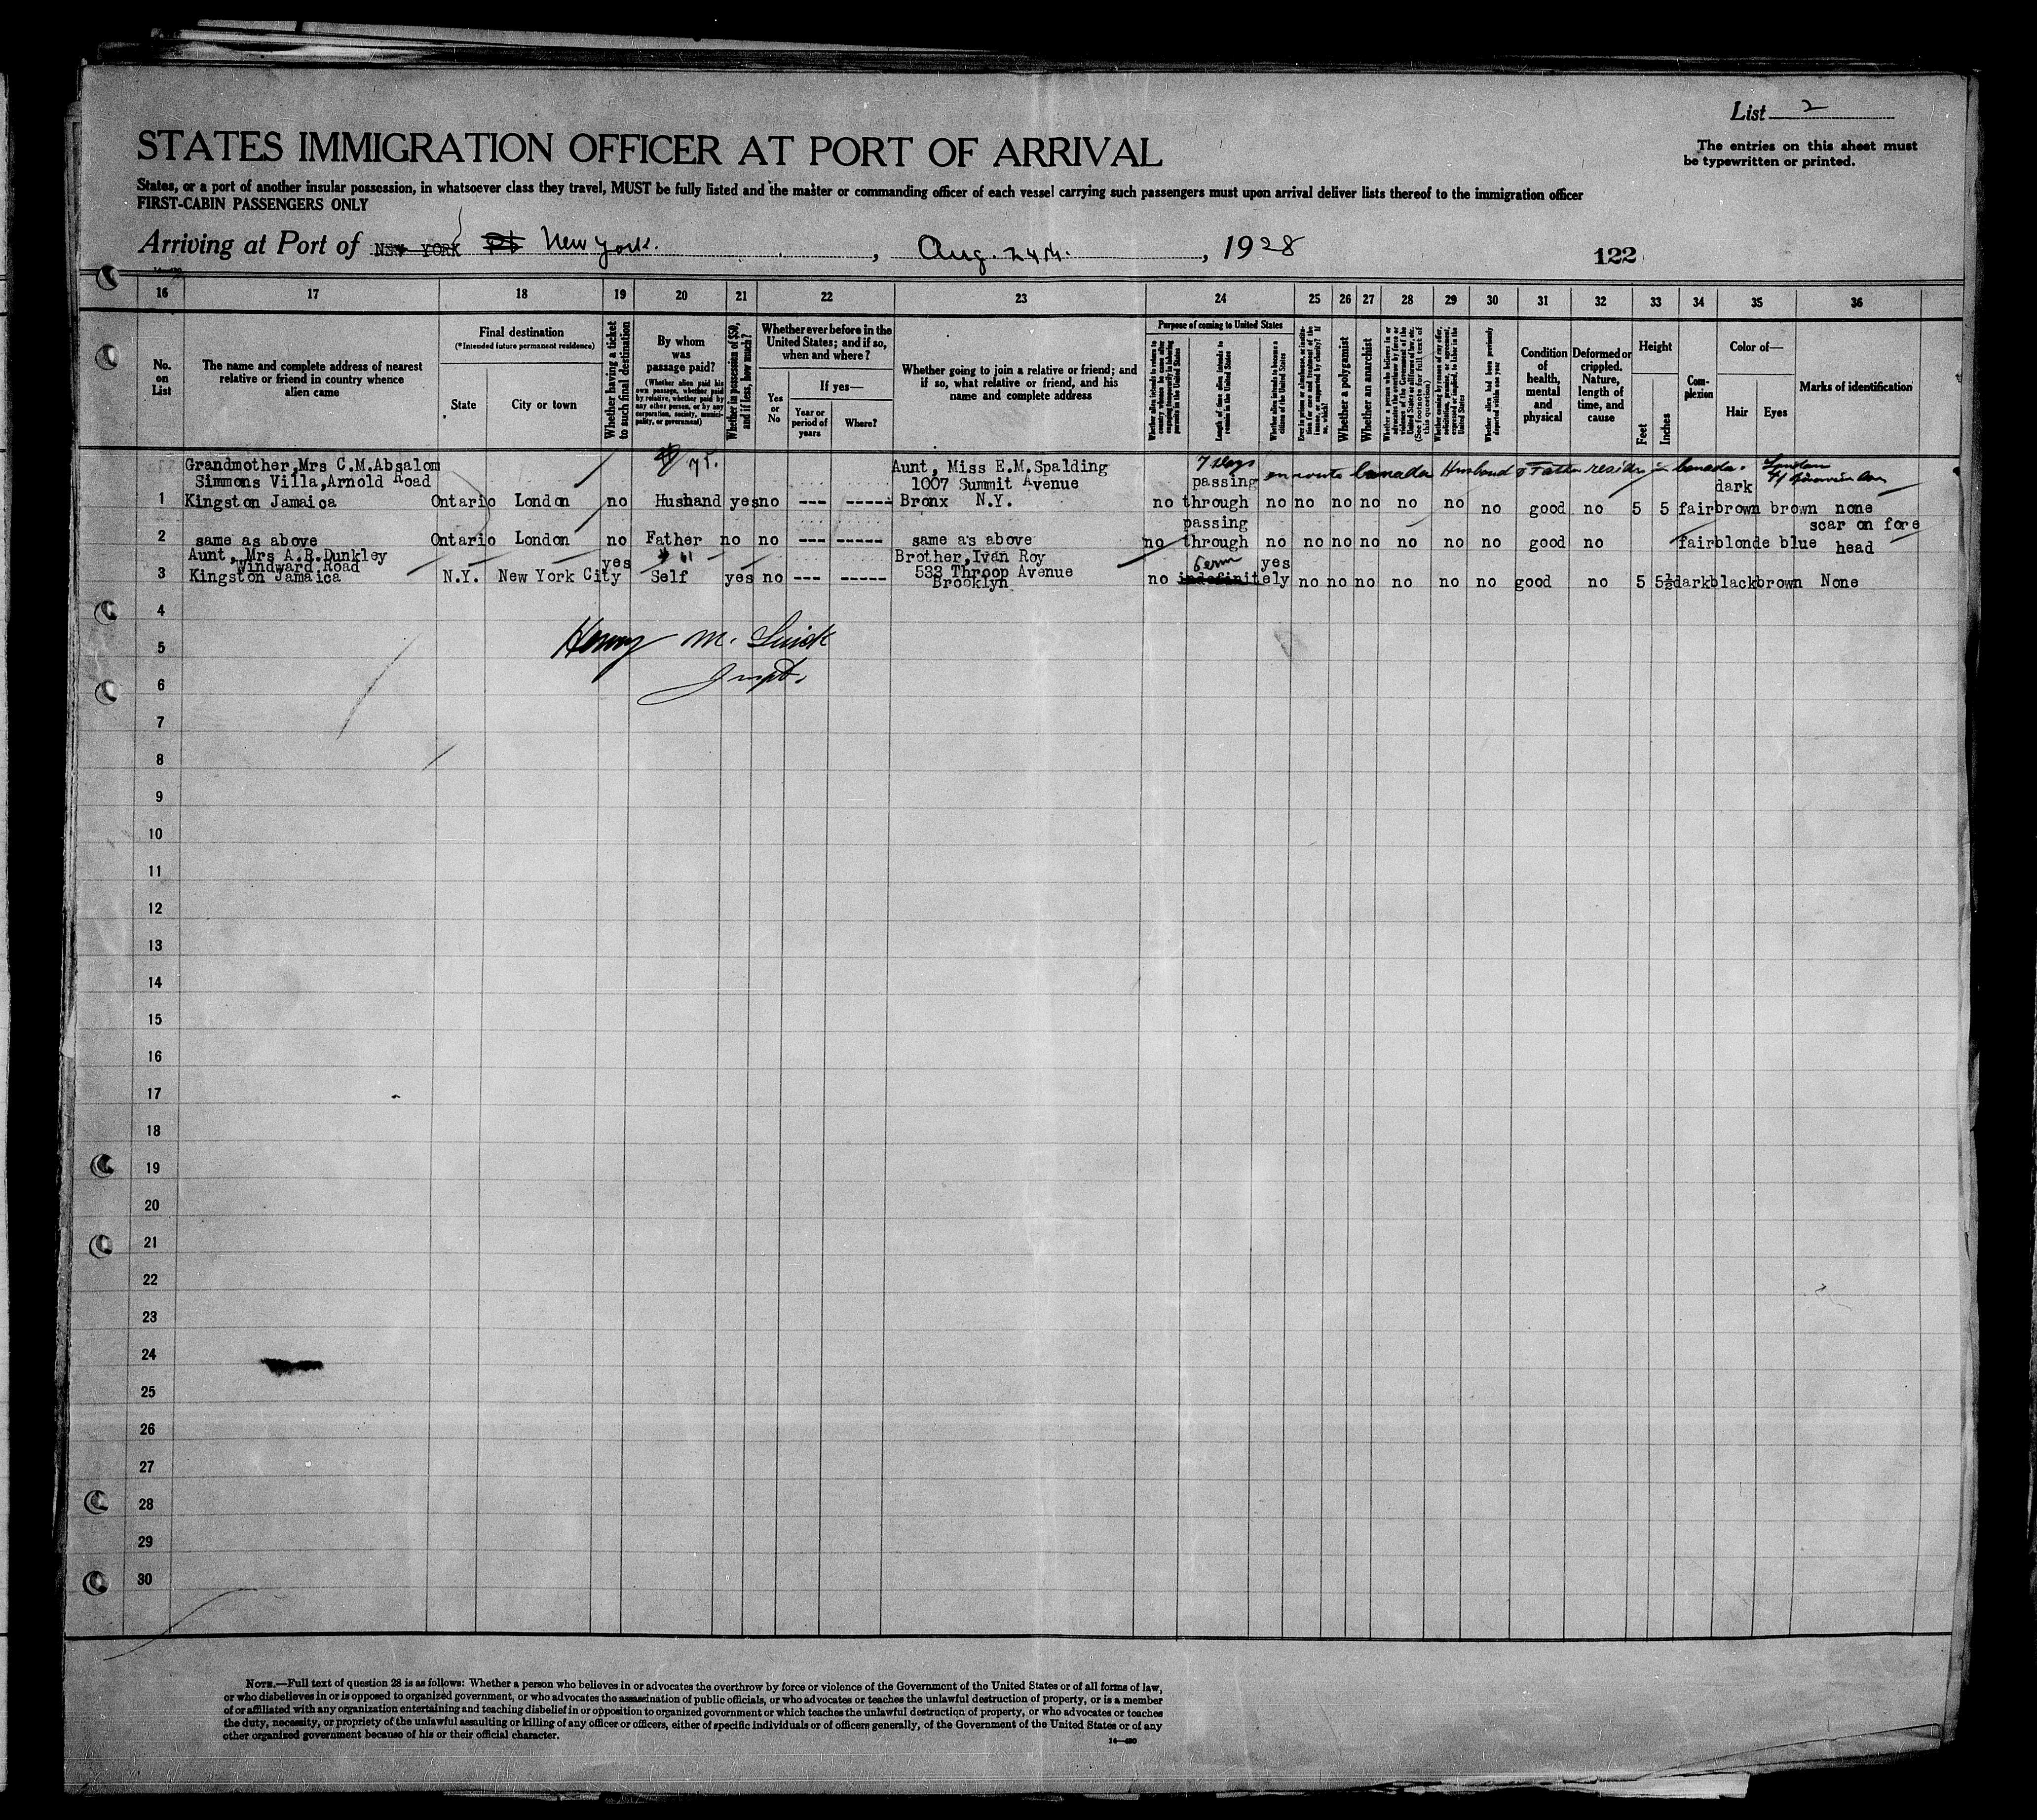 List 2
The entries on this sheet must
be typewritten or printed.
STATES IMMIGRATION OFFICER AT PORT OF ARRIVAL
States, or a port of another insular possession, in whatsoever class they travel, MUST be fully listed and the master or commanding officer of each vessel carrying such passengers must upon arrival deliver lists thereof to the immigration officer
FIRST-CABIN PASSENGERS ONLY
Arriving at Port of NEW YORK New York. , Aug. 24th. , 1928
122
16 17 18 19 20 21 22 23 24 25 26 27 28 29 30 31 32 33 34 35 36
No. on List
The name and complete address of nearest
relative or friend in country whence
alien came
Final destination
(*Intended future permanent residence)
State
City or town
Whether having a ticket
to such final destination
By whom
was
passage paid?
(Whether alien paid his
own passage, whether paid
by relative, whether paid by
any other person, or by any
corporation, society, munici-
pality, or government)
Whether in possession of $50,
and if less, how much?
Whether ever before in the
United States; and if so,
when and where?
Yes
or
No
If yes—
Year or
period of
years
Where?
Whether going to join a relative or friend; and
if so, what relative or friend, and his
name and complete address
Purpose of coming to United States
Length of time alien intends to
remain in the United States
Whether alien intends to become a
citizen of the United States
Whether a polygamist
Whether an anarchist
Whether alien had been previously
deported within one year
Condition
of
health,
mental
and
physical
Deformed or
crippled.
Nature,
length of
time, and
cause
Height
Feet
Inches
Com-
plexion
Color of—
Hair
Eyes
Marks of identification
Grandmother, Mrs C.M.Absalom
Simmons Villa, Arnold Road
1 Kingston Jamaica Ontario London no Husband yes no --- -----
75.
Aunt, Miss E.M.Spalding
1007 Summit Avenue
Bronx N.Y.
7 days
en route Canada Husband & Father reside in Canada. London
passing
no through no no no no no no no good no 5 5 fair
dark
brown brown none
2 same as above Ontario London no Father no no --- ----- same as above
passing
no through no no no no no no no good no fair blonde blue
scar on fore
head
Aunt, Mrs A.R.Dunkley
Windward Road
3 Kingston Jamaica N.Y. New York City yes Self yes no --- -----
Brother, Ivan Roy
533 Throop Avenue
Brooklyn
Perm
no indefinitely yes no no no no no no good no 5 5½ dark black brown None
4
5
Henry M.
Inspt.
6
7
8
9
10
11
12
13
14
15
16
17
18
19
20
21
22
23
24
25
26
27
28
29
30
NOTE.—Full text of question 28 is as follows: Whether a person who believes in or advocates the overthrow by force or violence of the Government of the United States or of all forms of law,
or who disbelieves in or is opposed to organized government, or who advocates the assassination of public officials, or who advocates or teaches the unlawful destruction of property, or is a member
of or affiliated with any organization entertaining and teaching disbelief in or opposition to organized government or which teaches the unlawful destruction of property, or who advocates or teaches
the duty, necessity, or propriety of the unlawful assaulting or killing of any officer or officers, either of specific individuals or of officers generally, of the Government of the United States or of any
other organized government because of his or their official character.
14—480